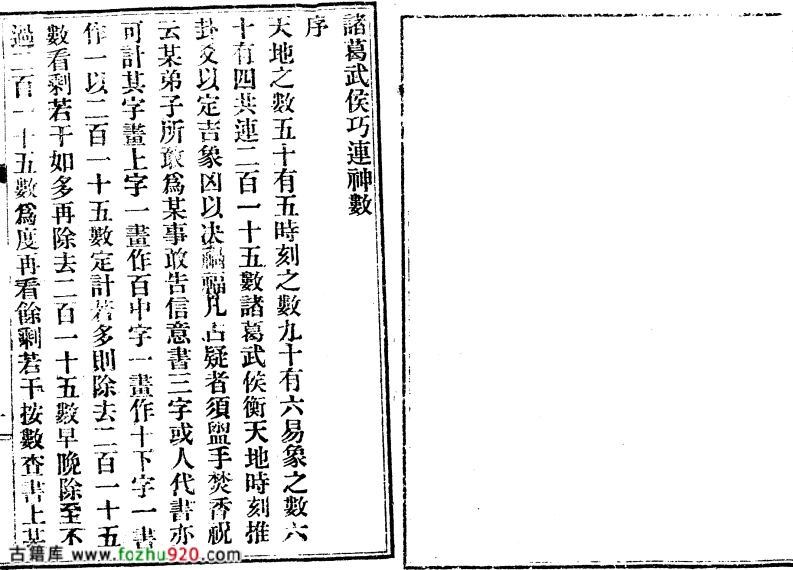 諸葛武侯巧連神數
序
天地之數五十有五時刻之數九十有六易象之數六
十有四共連二百一十五數諸葛武侯衡天地時刻推
卦爻以定吉象凶以决禍福凡占疑者須盥手焚香祝
云某弟子所敢爲某事敢告信意書三字或人代書亦
可計其字畫上字一畫作百中字一畫作十下字一畫
作一以二百一十五數定計若多則除去二百一十五
數看剩若干如多再除去二百一十五數早晚除至不
過二百一十五數爲度再看餘剩若干按數查書上某
古籍库 www.fozhu920.com